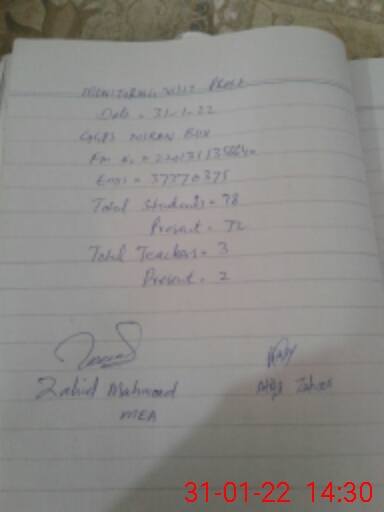 MONITORING VISIT PROOF
Date = 31-1-22
GGPS MIRAN BUX
EMIS = 37370375
Total Students = 78
Present = 72
Total Teachers = 3
Present = 2
Zahid Mahmood
MEA
31-01-22 14:30